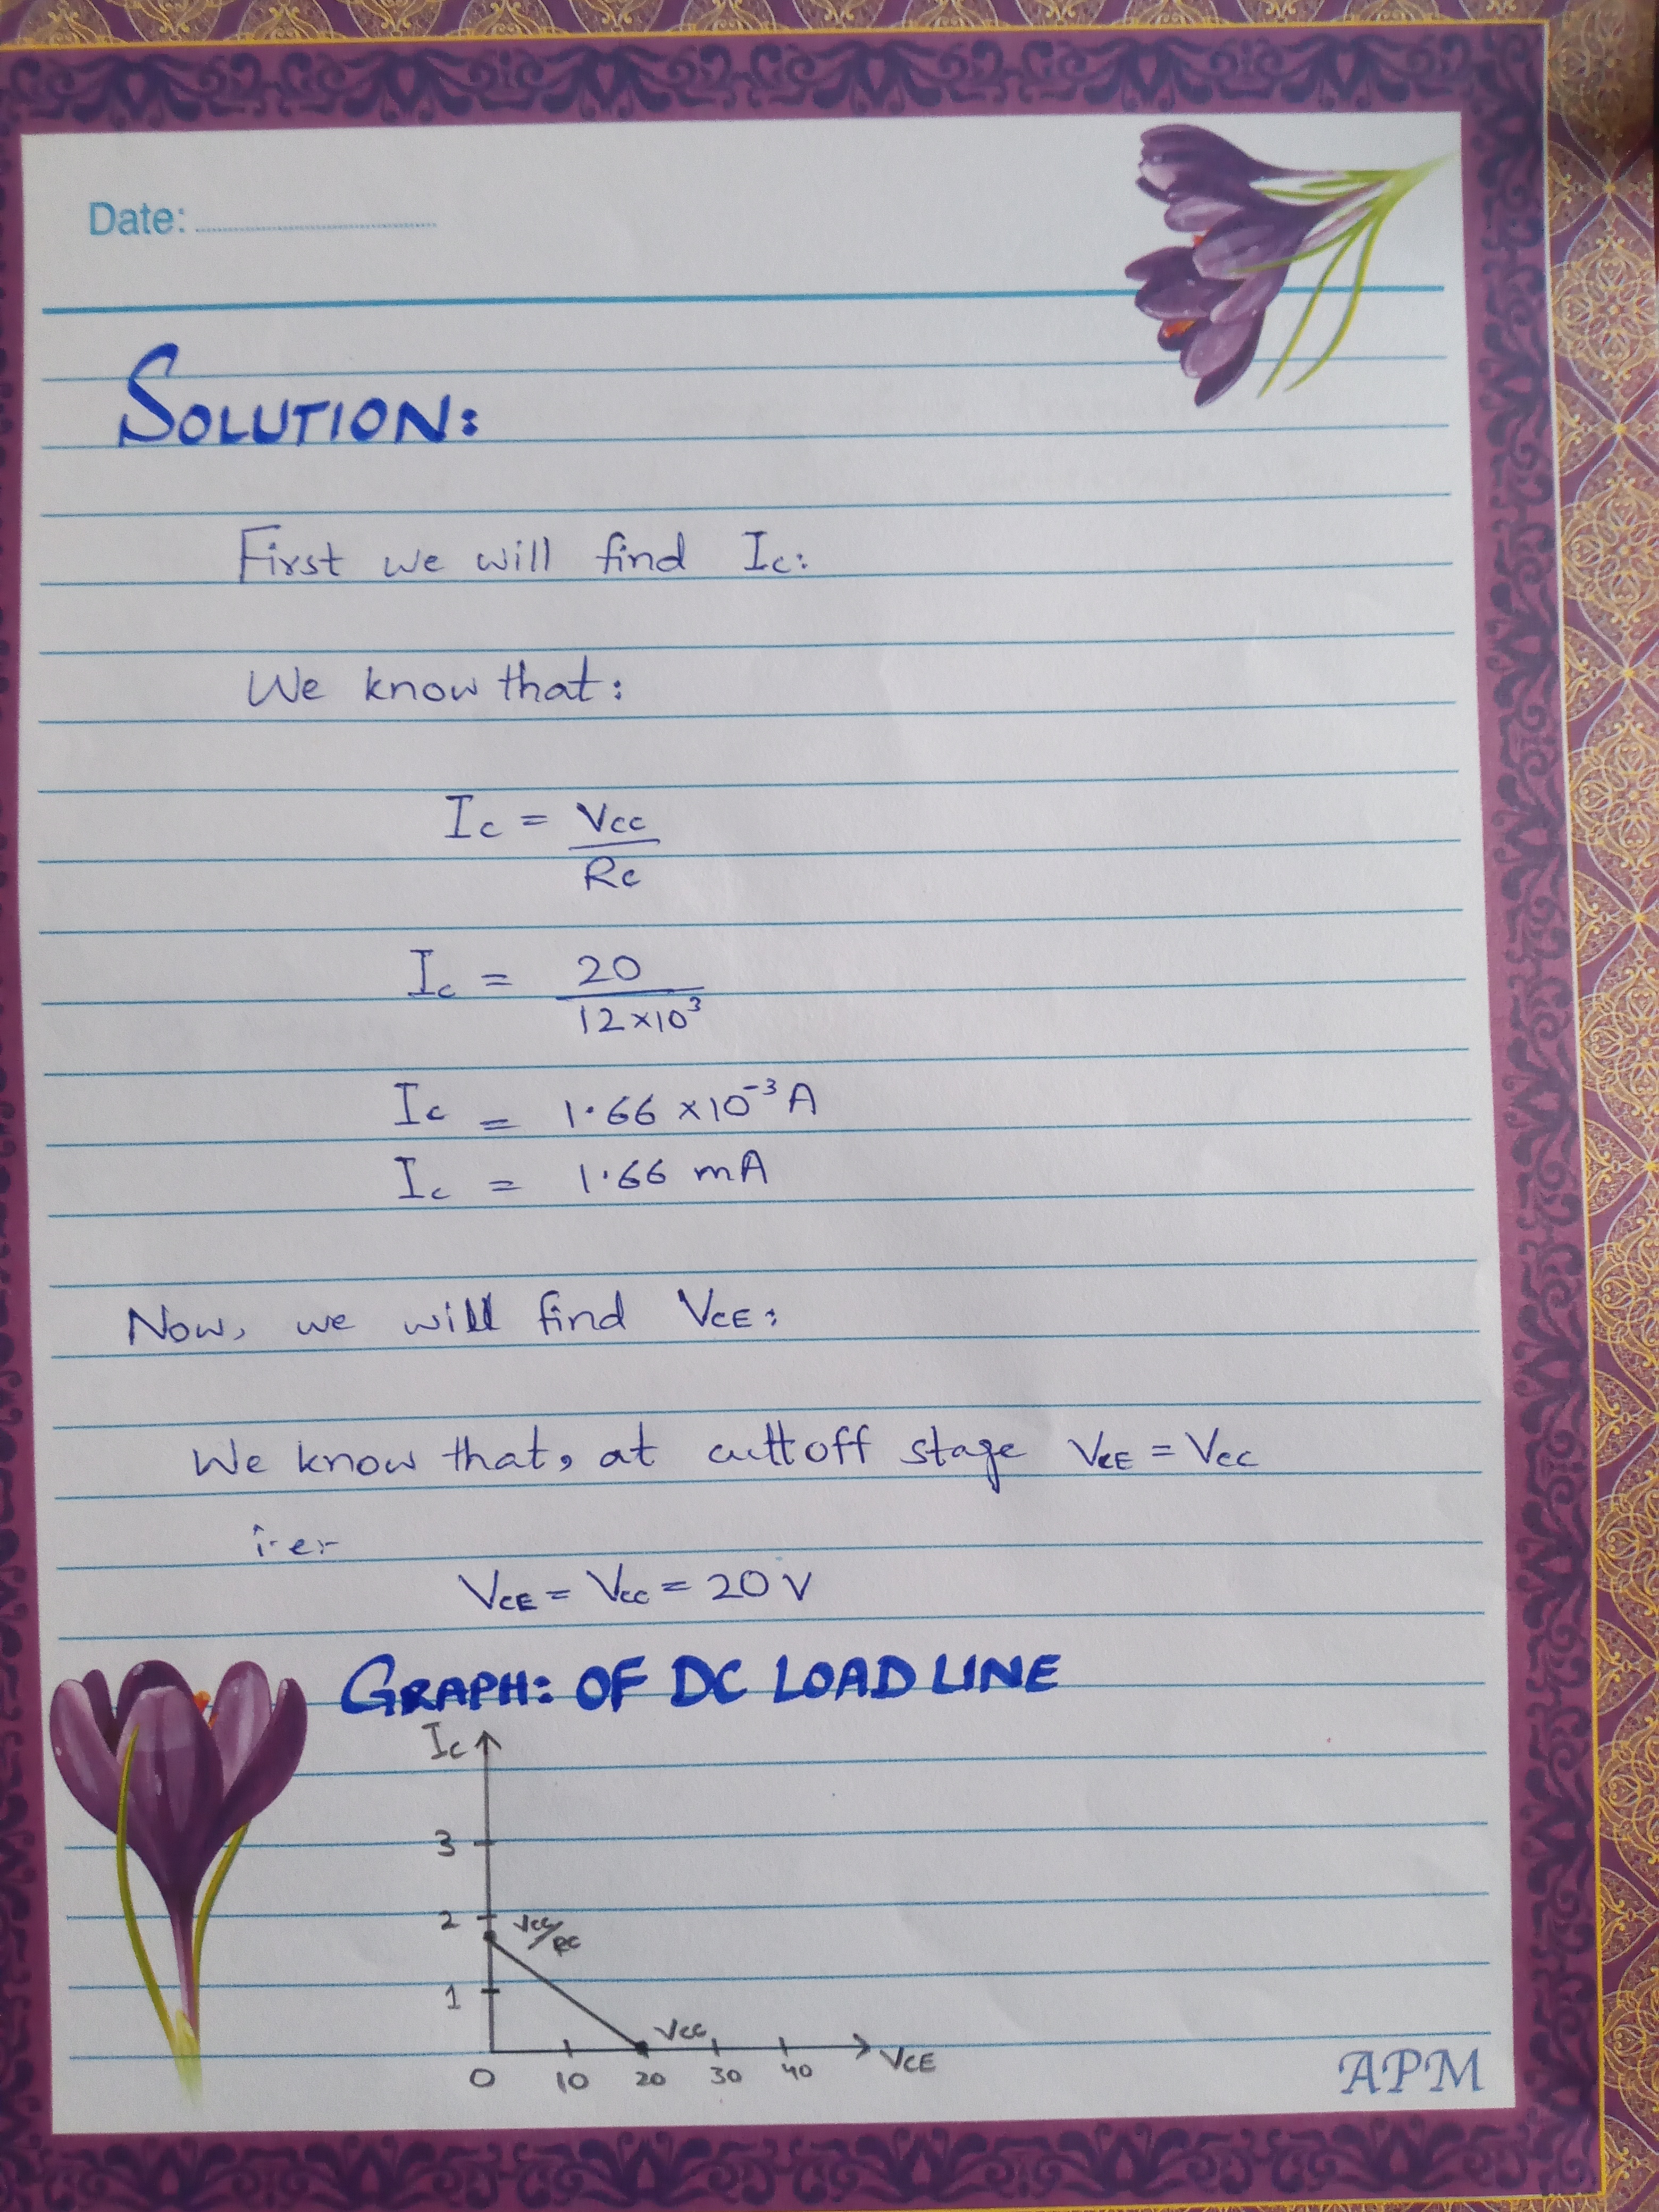 Date:
SOLUTION:
First we will find Ic:
We know that:
Ic = Vcc
Rc
Ic = 20
12×10³
Ic = 1.66 ×10⁻³ A
Ic = 1.66 mA
Now, we will find VCE:
We know that, at cuttoff stage VCE = Vcc
i.e.
VCE = Vcc = 20 V
GRAPH: OF DC LOAD LINE
Ic
3
2 Vcc/Rc
1
Vcc
VCE
0 10 20 30 40
APM